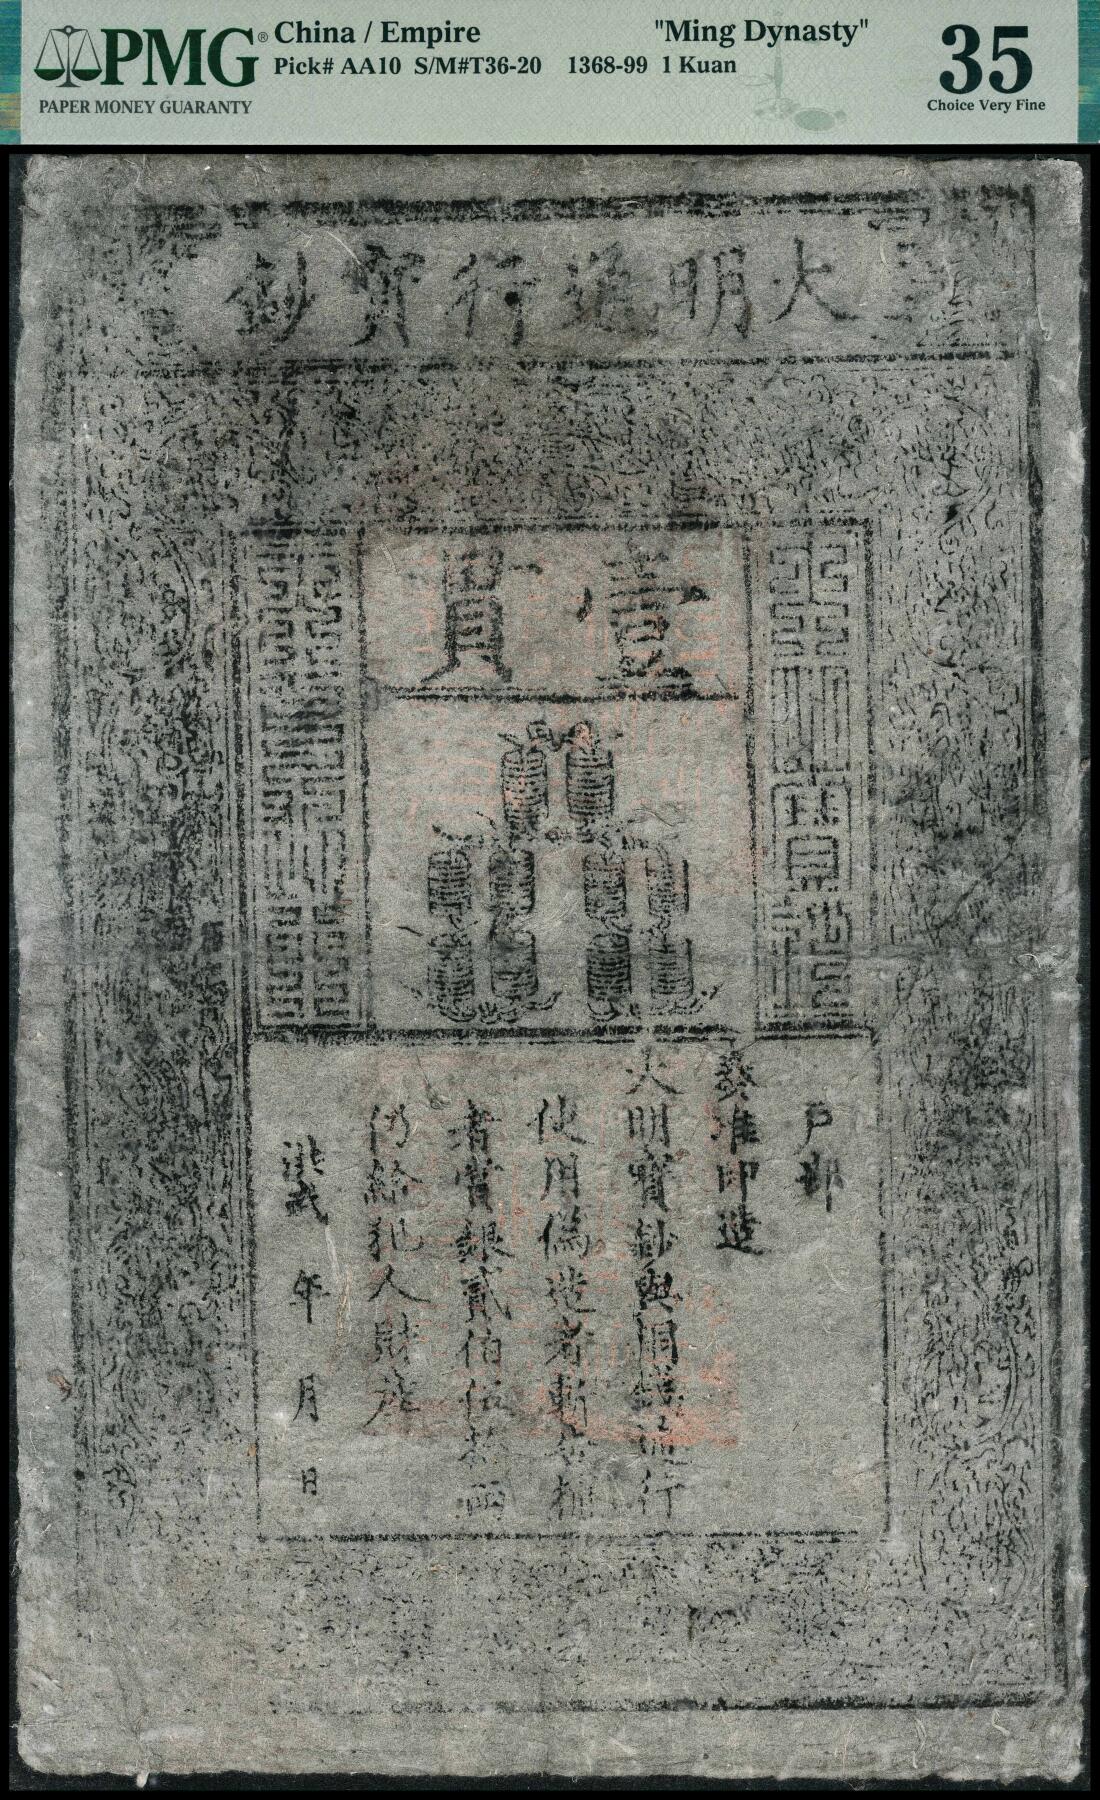 PMG®
PAPER MONEY GUARANTY
China / Empire "Ming Dynasty"
Pick# AA10 S/M#T36-20 1368-99 1 Kuan
35
Choice Very Fine
大明通行寶鈔
壹貫
大明寶鈔
天下通行
戶部
奏准印造
大明寶鈔與銅錢通行
使用偽造者斬告捕
者賞銀貳伯伍拾兩
仍給犯人財產
洪武 年 月 日